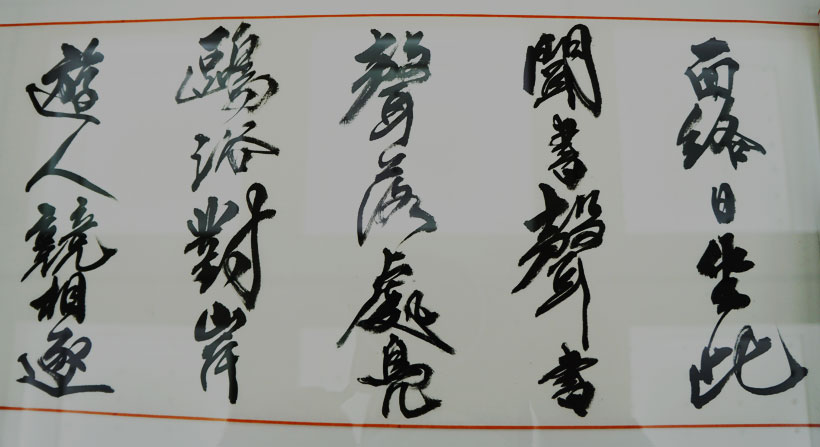 面終日坐此
聞書聲書
聲落處鳧
鷗浴對岸
遊人競相逐